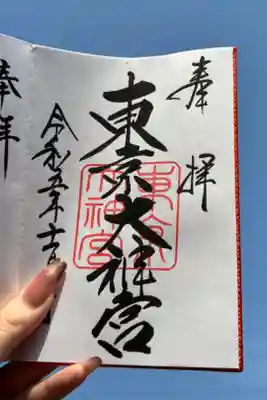 奉拝
東京大神宮
東京大神宮
令和五年十
奉拝